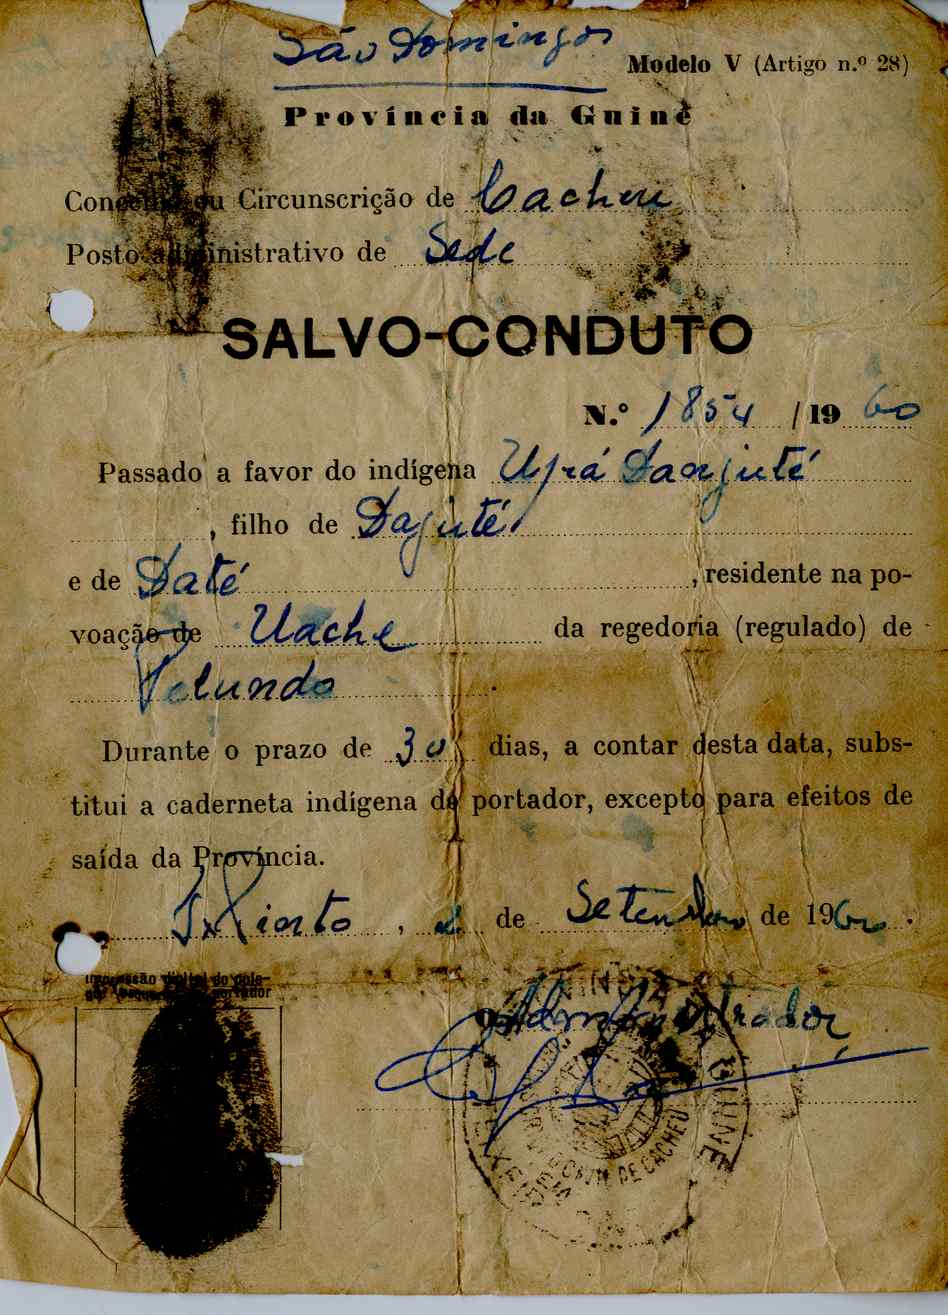 São Domingos
Modelo V (Artigo n.º 28)
Província da Guiné
Concelho ou Circunscrição de Cacheu
Posto administrativo de Sede
SALVO-CONDUTO
N.º 1854 /19 60
Passado a favor do indígena Uprá Danjuté
, filho de Dajuté
e de Daté , residente na po-
voação de Uache da regedoria (regulado) de
Pelundo
Durante o prazo de 30 dias, a contar desta data, subs-
titui a caderneta indígena do portador, excepto para efeitos de
saída da Província.
, 2 de Setembro de 1960.
Impressão digital do pole-
gar esquerdo do portador
O Administrador
GUINÉ
DE CACHEU